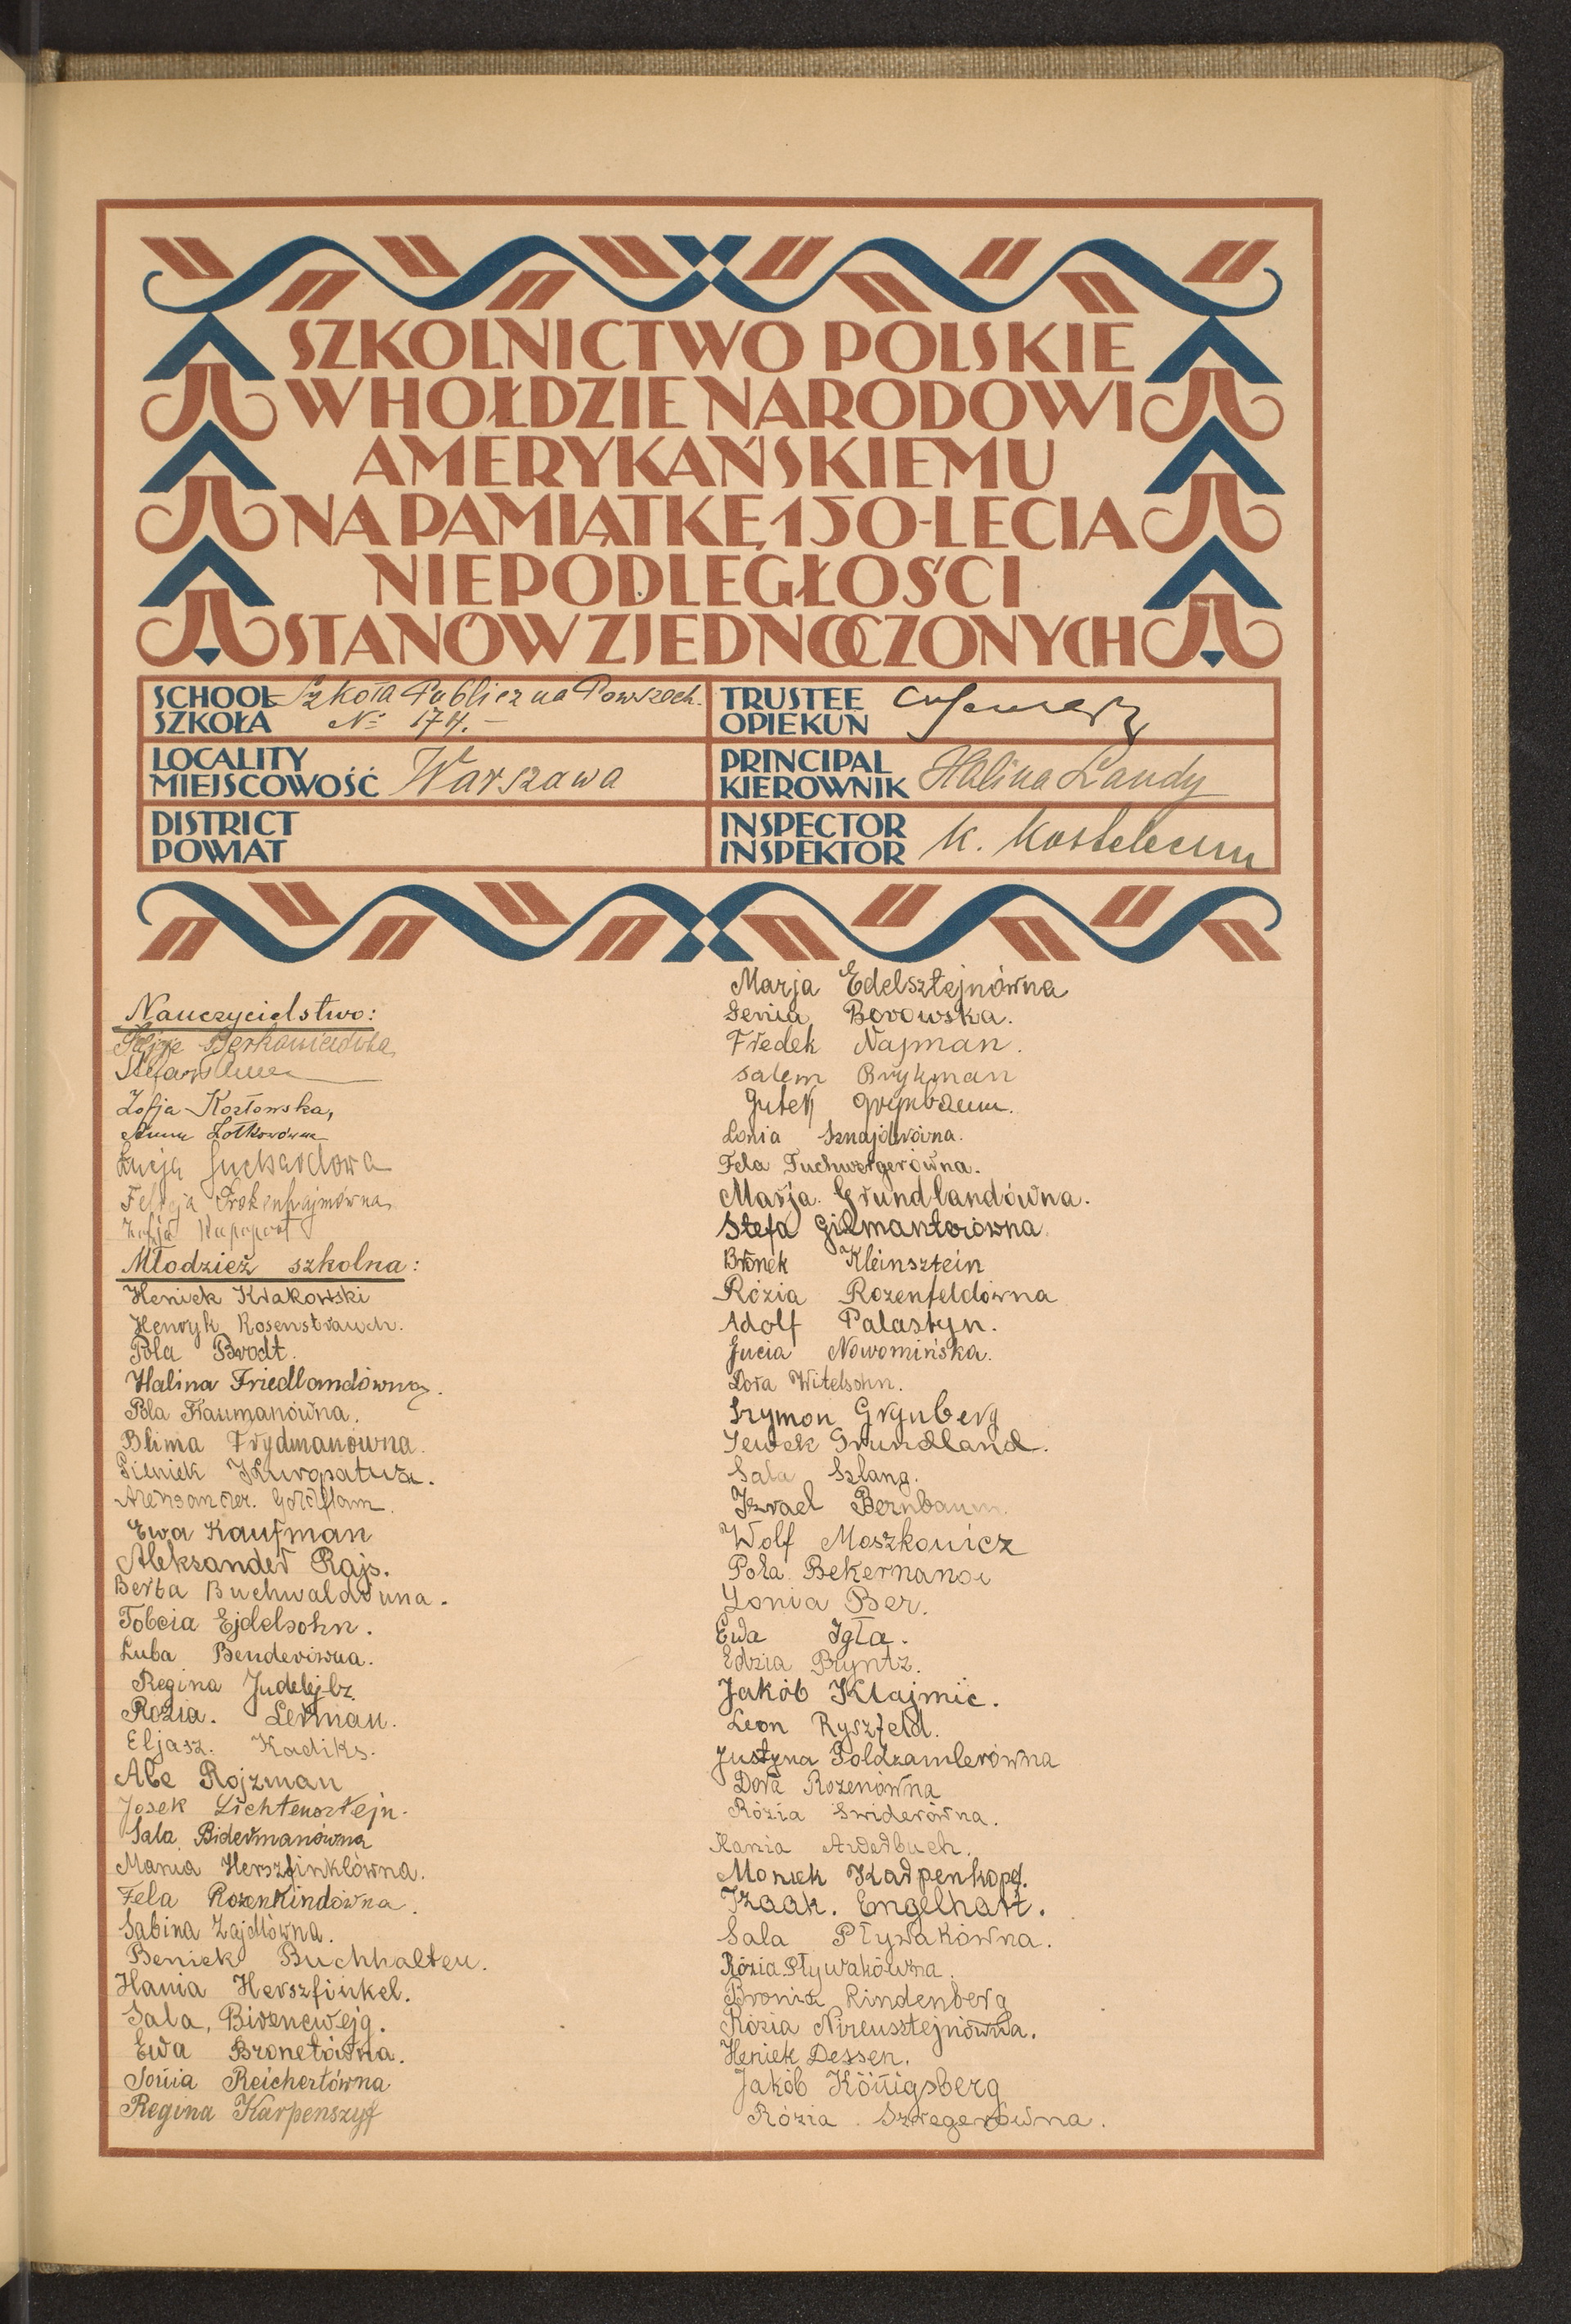 SZKOLNICTWO POLSKIE
W HOŁDZIE NARODOWI
AMERYKAŃSKIEMU
NA PAMIĄTKĘ 150-LECIA
NIEPODLEGŁOŚCI
STANÓW ZJEDNOCZONYCH
SCHOOL SZKOŁA Szkoła Publiczna Powszech. № 174.-
TRUSTEE OPIEKUN
LOCALITY MIEJSCOWOŚĆ Warszawa
PRINCIPAL KIEROWNIK Halina Landy
DISTRICT POWIAT
INSPECTOR INSPEKTOR K.
Nauczycielstwo:
Zofja Kozłowska,
Łucja Suchardowa
Felicja
Zofja Rapoport
Młodzież szkolna:
Heniek Krakowski
Henryk Rosenstrauch.
Pola Brodt.
Halina Friedlandówna.
Pola Fraumanówna.
Blima Frydmanówna.
Pieniek Kuropatwa.
Aleksander. Goldflam.
Ewa Kaufman
Aleksander Rajs.
Berta Buchwaldówna.
Tobcia Ejdelsohn.
Luba Benderówna.
Regina
Rózia. Lerman.
Eljasz. Kadiks.
Abe Rojzman
Josek Lichtensztejn.
Sala Bidermanówna
Mania Herszfinklówna.
Fela Rozenkindówna.
Sabina Zajdlówna.
Beniek Buchhalter.
Hania Herszfinkel.
Sala, Birencwejg.
Ewa Bronetówna.
Sonia Reichertówna
Regina Karpenszyf
Marja Edelsztejnówna
Genia Borowska.
Fredek Najman.
Salem Brykman
Gutek Grynbaum.
Lonia Sznajdrówna.
Fela Tuchwergerówna.
Marja. Grundlandówna.
Stefa Gilmantorówna.
Bronek Kleinsztein
Rózia Rozenfeldówna
Adolf Palastyn.
Jucia Nowomińska.
Dora Witelsohn.
Szymon Grynberg
Sewek Grundland.
Sala Szlang.
Izrael Bernbaum.
Wolf Moszkowicz
Pola
Lonia Ber.
Ewa Igła.
Edzia Bryntz.
Jakób Klajmic.
Leon Ryszfeld.
Justyna Goldzamlerówna
Dora Rozenówna
Rózia Swiderówna.
Hania
Moniek Karpenkopf.
Izaak. Engelhart.
Sala Pływakówna.
Rózia Pływakówna.
Bronia Rindenberg
Rózia Nirensztejnówna.
Heniek Dessen.
Jakób Königsberg
Rózia Szwegerówna.